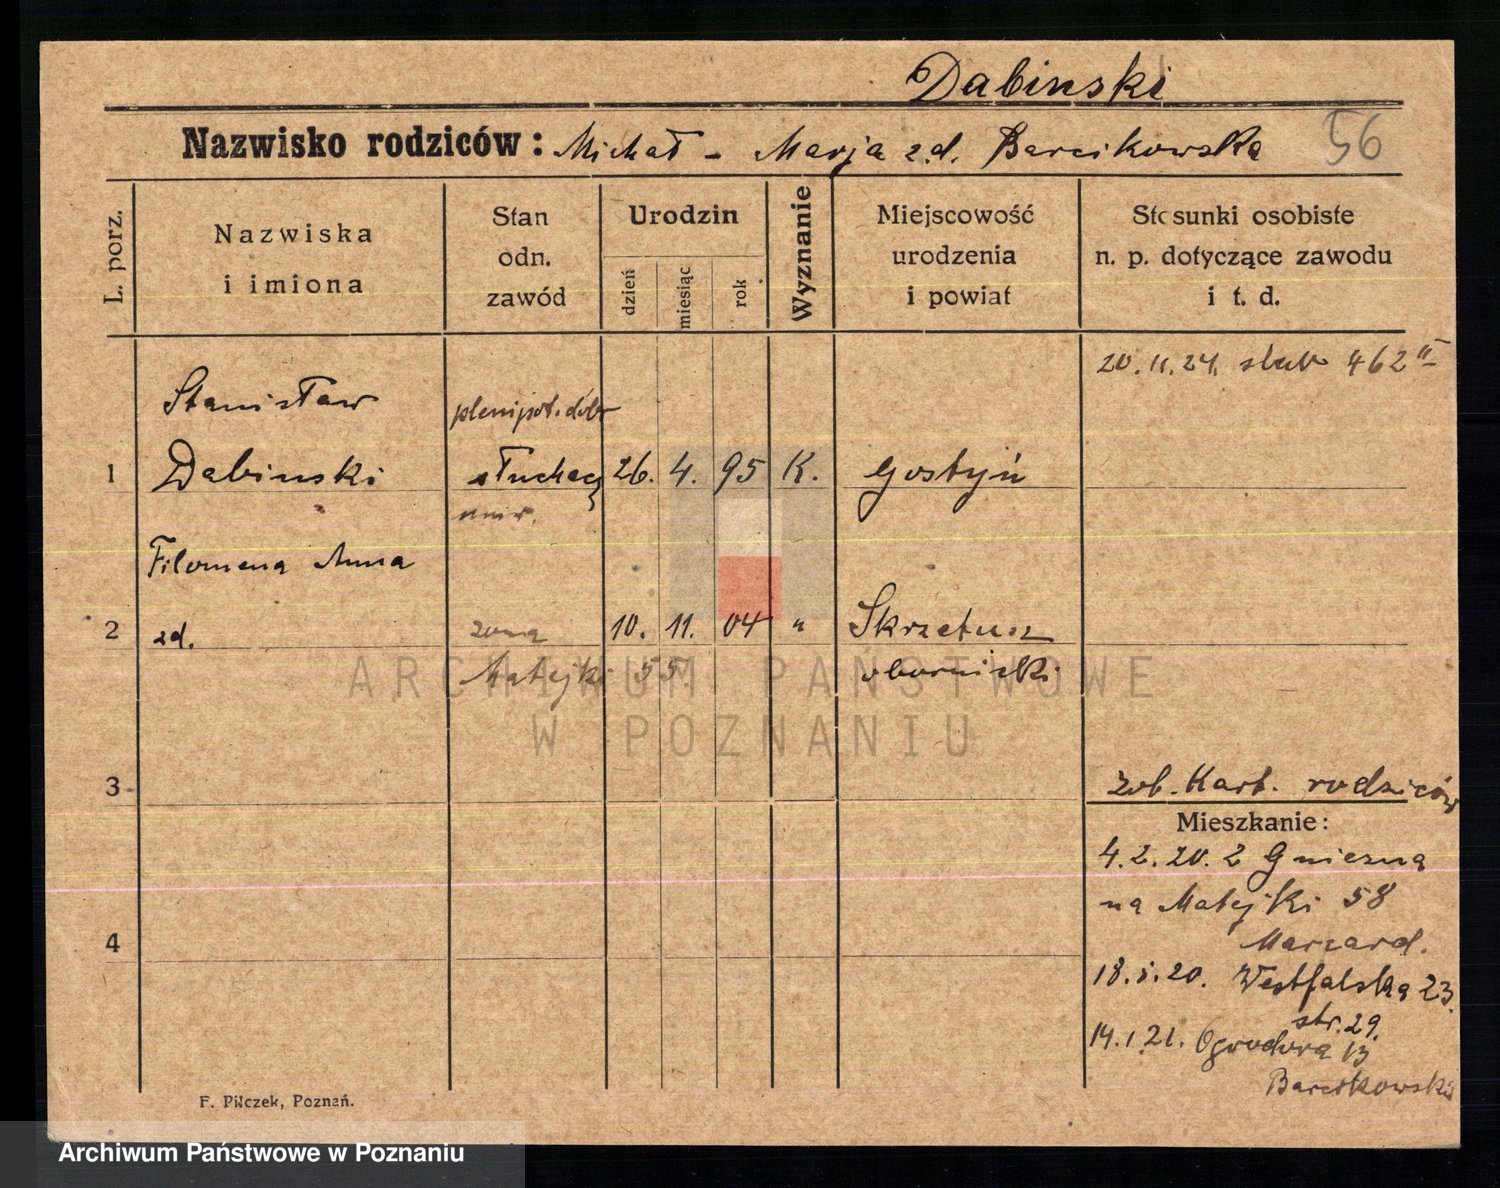 Dabinski
Nazwisko rodziców: Michał - Marja z.d. Barcikowska 56
L. porz.
Nazwiska
i imiona
Stan
odn.
zawód
Urodzin
dzień
miesiąc
rok
Wyznanie
Miejscowość
urodzenia
i powiat
Stosunki osobiste
n. p. dotyczące zawodu
i t. d.
20.11.24. ślub 462 II
Stanisław plenipot. dóbr
1 Dabinski słuchacz 26. 4. 95 K. Gostyń
uniw.
Filomena Anna
2 zd. żona 10. 11. 04 " Skrzetusz
Matejki 55. obornicki
3
zob. Kart. rodziców
Mieszkanie:
4.2.20. z Gniezna
na Matejki 58
4
18.5.20. Westfalska 23.
str. 29.
14.1.21. Ogrodowa 13
Barcikowski
F. Pilczek, Poznań.
ARCHIWUM PAŃSTWOWE
W POZNANIU
Archiwum Państwowe w Poznaniu